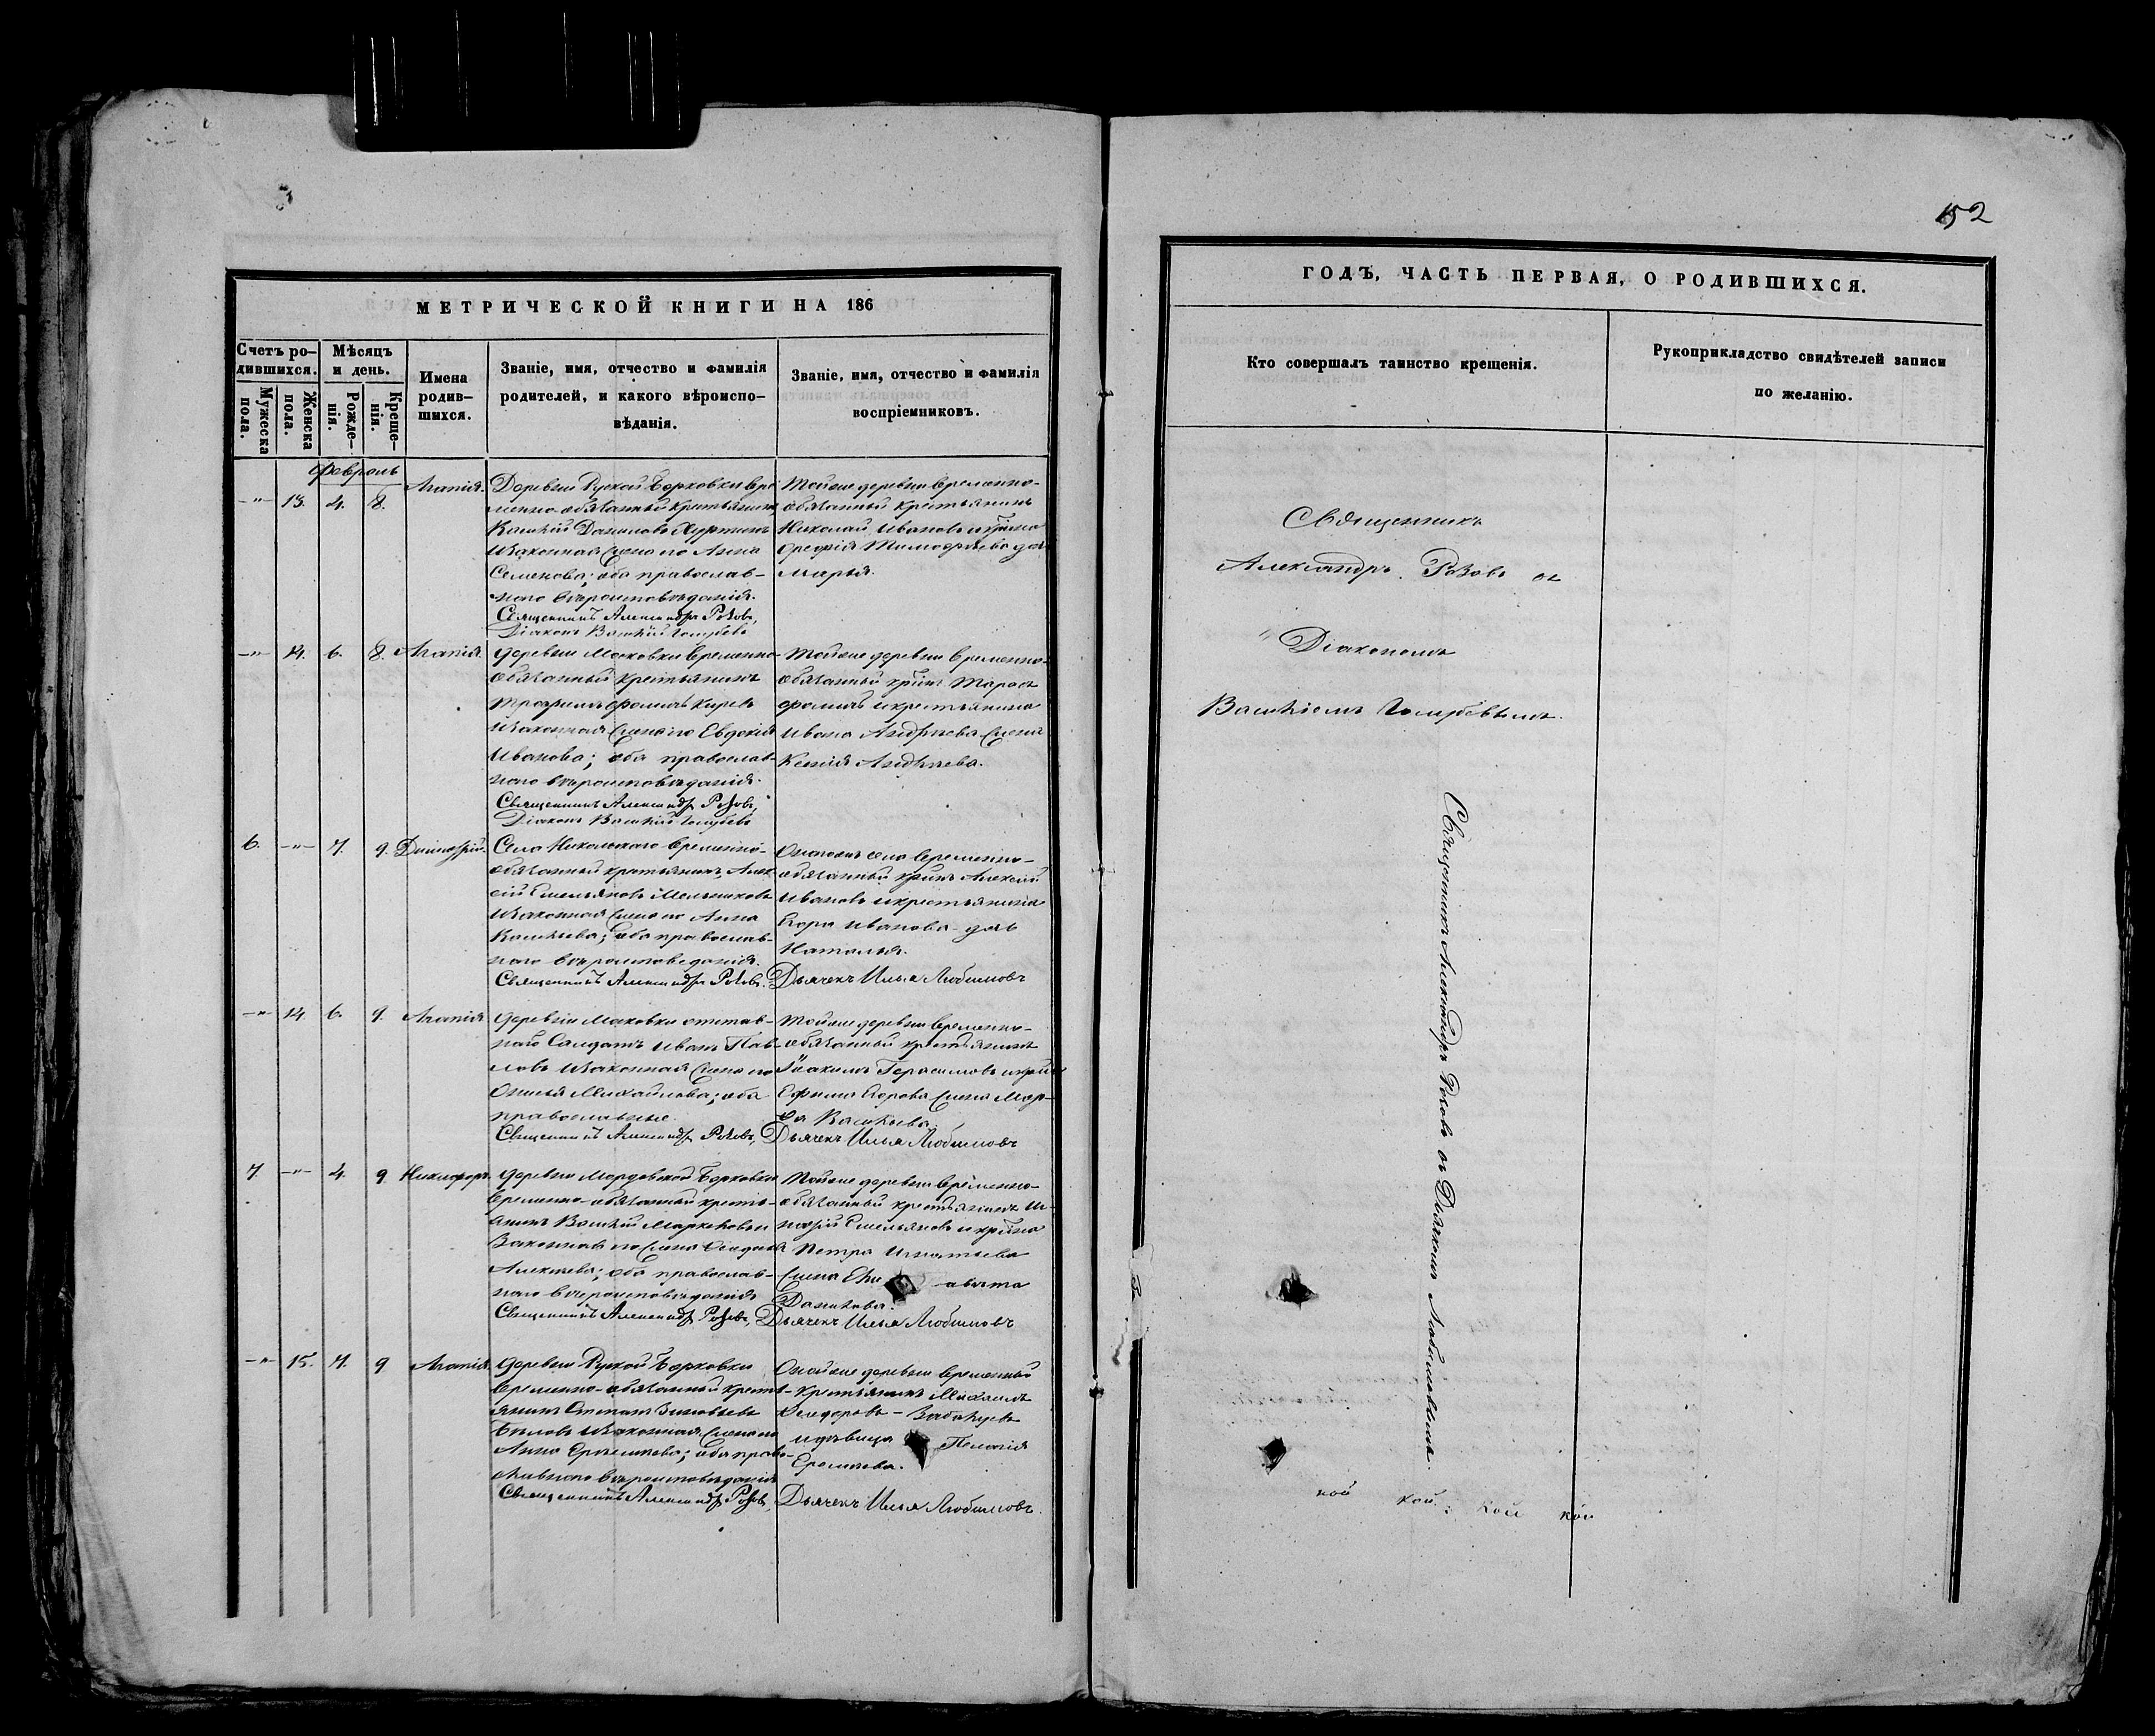 152
МЕТРИЧЕСКОЙ КНИГИ НА 186
Счетъ ро-
дившихся.
Мужеска
пола.
Женска
пола.
Мѣсяцъ
и день.
Рожде-
нія.
Креще-
нія.
Имена
родив-
шихся.
Званіе, имя, отчество и фамилія
родителей, и какого вѣроиспо-
вѣданія.
Званіе, имя, отчество и фамилія
воспріемниковъ.
Февраль
13. 4. 8. Агапія.
Деревни Руской Борковки вре
менно-обязанный крестьянинъ
Василій Даниловъ
и законная жена его Анна
Семенова; оба православ-
наго вѣроисповѣданія.
Священникъ Александръ Розовъ,
Діаконъ Василій Голубевъ
Тойже деревни временно-
обязанный крестьянинъ
Николай Ивановъ и крѣнина
Тимофѣева дочь
Марья.
14. 6. 8. Агапія.
деревни Московки временно-
обязанный крестьянинъ
Трофимъ Фоминъ
и законная жена его Евдокія
Иванова; оба православ-
наго вѣроисповѣданія.
Священникъ Александръ Розовъ,
Діаконъ Василій Голубевъ
Тойже деревни временно-
обязанный крѣнъ Тарасъ
Фоминъ и крестьянина
Ивана Андреева жена
Ксенія Андреева.
6. 7. 9. Димитрій.
Села Никольскаго временно-
обязанный крестьянинъ Алек
сій Емельяновъ Мельниковъ
и законная жена его Анна
Васильева; оба православ-
наго вѣроисповеданія.
Священникъ Александръ Розовъ.
Онагожъ села временно-
обязанный крѣнъ Алексій
Ивановъ и крестьянина
Егора Иванова дочь
Наталья.
Дьячекъ Илья Любимовъ
14. 6. 9. Агапія
деревни Московки отстав-
ной Солдатъ Иванъ Пав-
ловъ и законная жена его
Михайлова; оба
православные.
Священникъ Александръ Розовъ,
Тойже деревни временно-
обязанный крестьянинъ
Іоакимъ Герасимовъ и крѣни
Ефима Егорова жена Мар-
Васильева.
Дьячекъ Илья Любимовъ
7. 4. 9 Никифоръ.
деревни Мордовской Борковки
временно-обязанный кресть-
янинъ Василій
законная его жена
Алексѣева; оба православ-
наго вѣроисповѣданія
Священникъ Александръ Розовъ,
Тойже деревни временно-
обязанный крестьянинъ Иг-
натій Емельяновъ и крѣнина
Петра Игнатьева
жена Ели авѣта
Данилова.
Дьячекъ Илья Любимовъ
15. 7. 9 Агапія
деревни Руской Борковки
временно-обязанный кресть-
янинъ Степанъ Зиновьевъ
Бѣловъ и законная жена его
Анна оба право-
славнаго вѣроисповѣданія
Священникъ Александръ Розовъ,
Онойже деревни временный
крестьянинъ Михаилъ
и дѣвица Пелагія
Дьячекъ Илья Любимовъ.
ГОДЪ, ЧАСТЬ ПЕРВАЯ, О РОДИВШИХСЯ.
Кто совершалъ таинство крещенія.
Рукоприкладство свидѣтелей записи
по желанію.
Священникъ
Александръ Розовъ съ
Діакономъ
Василіемъ Голубевымъ.
Священникъ Александръ Розовъ съ Дьячкомъ Любимовымъ.
кой кой кой кой